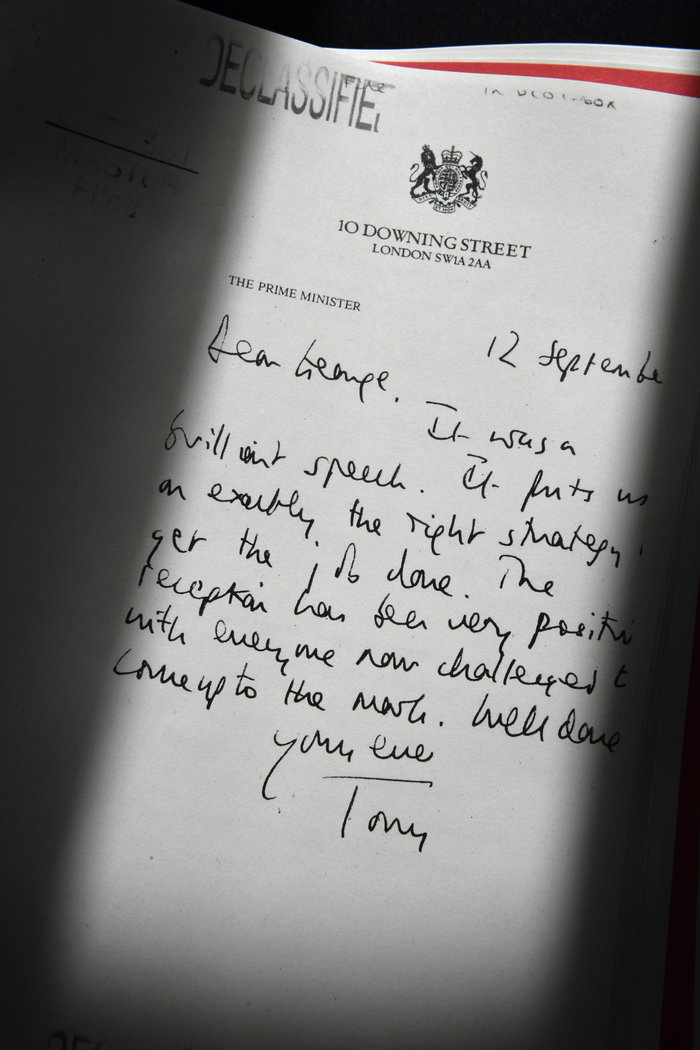 DECLASSIFIE
10 DOWNING STREET
LONDON SW1A 2AA
THE PRIME MINISTER
12 Septembe
Dear George.
It was a
brilliant speech. It puts us
on exactly the right strategy
get the job done. The
reception has been very positiv
with everyone now challenged t
come up to the mark. Well done
Yours ever
Tony